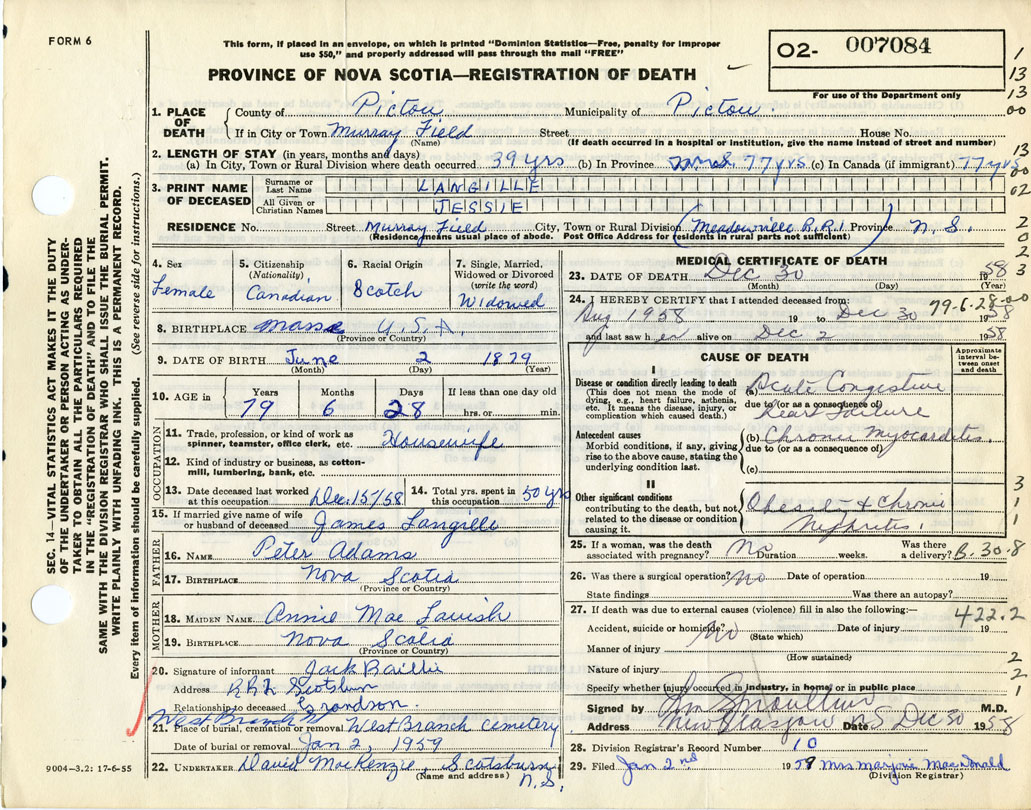 FORM 6
This form, if placed in an envelope, on which is printed "Dominion Statistics—Free, penalty for improper
use $50," and properly addressed will pass through the mail "FREE"
PROVINCE OF NOVA SCOTIA—REGISTRATION OF DEATH
O2- 007084
For use of the Department only
1. PLACE OF DEATH
County of Pictou Municipality of Pictou
If in City or Town Murray Field Street House No.
(Name) (If death occurred in a hospital or institution, give the name instead of street and number)
2. LENGTH OF STAY (in years, months and days)
(a) In City, Town or Rural Division where death occurred 39 yrs (b) In Province 77 yrs. (c) In Canada (if immigrant) 77 yrs
3. PRINT NAME OF DECEASED
Surname or Last Name LANGILLE
All Given or Christian Names JESSIE
RESIDENCE No. Street Murray Field City, Town or Rural Division (Meadowville R.R.1) Province N.S.
(Residence means usual place of abode. Post Office Address for residents in rural parts not sufficient)
4. Sex Female
5. Citizenship (Nationality) Canadian
6. Racial Origin Scotch
7. Single, Married, Widowed or Divorced (write the word) Widowed
8. BIRTHPLACE Mass U.S.A.
(Province or Country)
9. DATE OF BIRTH June 2 1879
(Month) (Day) (Year)
10. AGE in Years Months Days If less than one day old
79 6 28 hrs. or min.
OCCUPATION
11. Trade, profession, or kind of work as spinner, teamster, office clerk, etc. Housewife
12. Kind of industry or business, as cotton-mill, lumbering, bank, etc.
13. Date deceased last worked at this occupation Dec. 15/58
14. Total yrs. spent in this occupation 50 yrs
15. If married give name of wife or husband of deceased James Langille
FATHER
16. NAME Peter Adams
17. BIRTHPLACE Nova Scotia
(Province or Country)
MOTHER
18. MAIDEN NAME Annie Mae
19. BIRTHPLACE Nova Scotia
(Province or Country)
20. Signature of informant Jack Baillie
Address Scotsburn
Relationship to deceased Grandson.
West Branch
21. Place of burial, cremation or removal West Branch cemetery
Date of burial or removal Jan 2, 1959
22. UNDERTAKER David MacKenzie, Scotsburn
(Name and address) N.S.
MEDICAL CERTIFICATE OF DEATH
23. DATE OF DEATH Dec 30 1958
(Month) (Day) (Year)
24. I HEREBY CERTIFY that I attended deceased from: 79-6-28-00
Aug 1958 19 to Dec 30 1958
and last saw her alive on Dec 2 1958
CAUSE OF DEATH
Approximate interval between onset and death
I
Disease or condition directly leading to death (a) Acute Congestive
(This does not mean the mode of dying, e.g., heart failure, asthenia, etc. It means the disease, injury, or complication which caused death.)
due to (or as a consequence of)
Heart Failure
Antecedent causes (b) Chronic Myocarditis.
Morbid conditions, if any, giving rise to the above cause, stating the underlying condition last.
due to (or as a consequence of)
(c)
II
Other significant conditions contributing to the death, but not related to the disease or condition causing it.
Obesity & Chronic
Nephritis.
25. If a woman, was the death associated with pregnancy? No Duration weeks. Was there a delivery? B.30-8
26. Was there a surgical operation? no Date of operation 19
State findings Was there an autopsy?
27. If death was due to external causes (violence) fill in also the following:— 422.2
Accident, suicide or homicide? no Date of injury 19
(State which)
Manner of injury
(How sustained)
Nature of injury
Specify whether injury occurred in industry, in home, or in public place
Signed by M.D.
Address New Glasgow NS Date Dec 30 1958
28. Division Registrar's Record Number 10
29. Filed Jan 2nd 1959 Mrs Marjorie MacDonald
(Division Registrar)
SEC. 14—VITAL STATISTICS ACT MAKES IT THE DUTY
OF THE UNDERTAKER OR PERSON ACTING AS UNDER-
TAKER TO OBTAIN ALL THE PARTICULARS REQUIRED
IN THE "REGISTRATION OF DEATH" AND TO FILE THE
SAME WITH THE DIVISION REGISTRAR WHO SHALL ISSUE THE BURIAL PERMIT.
WRITE PLAINLY WITH UNFADING INK. THIS IS A PERMANENT RECORD.
Every item of information should be carefully supplied. (See reverse side for instructions.)
9004-3.2: 17-6-55
1
13
13
00
13
00
02
2
0
2
2
3
3
1
1
2
2
1